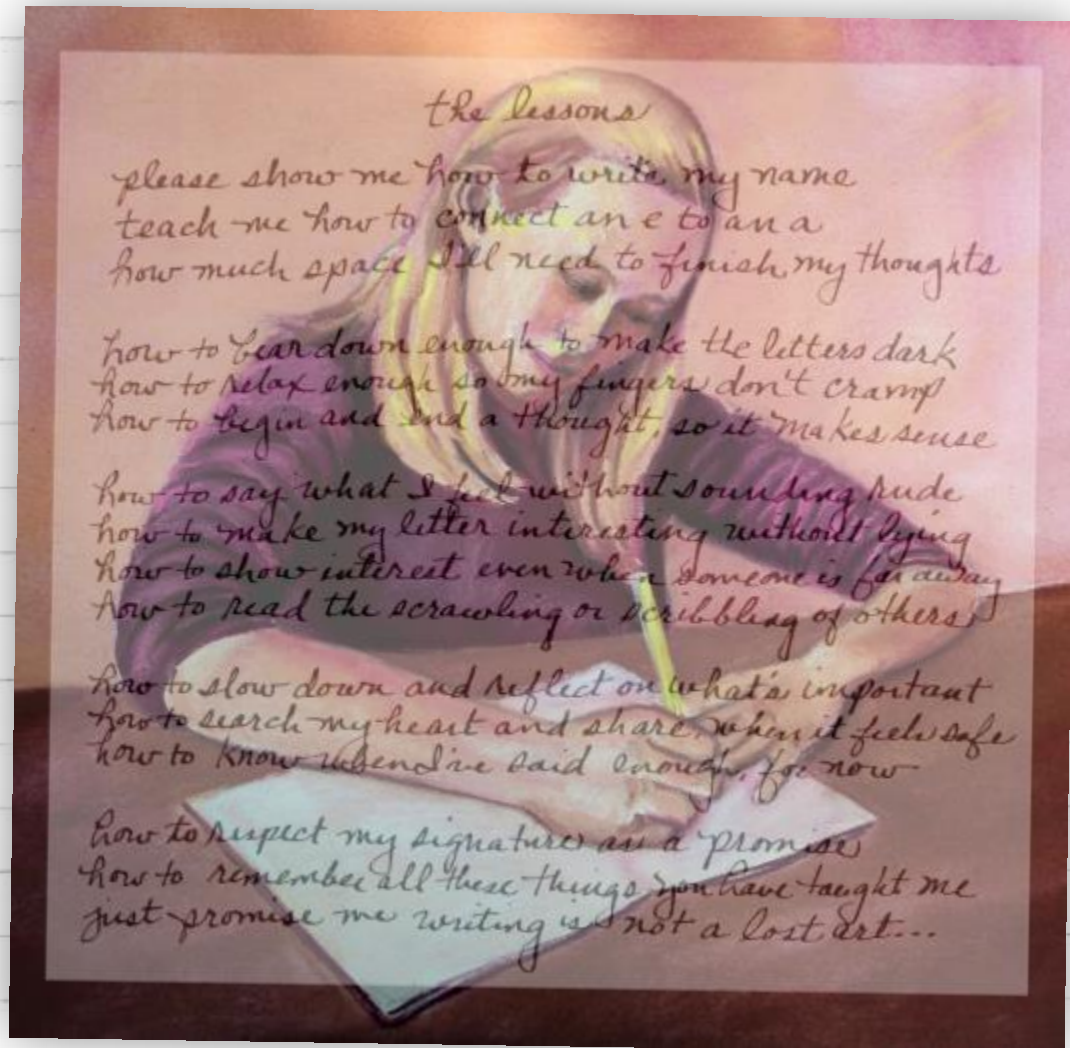 the lessons
please show me how to write my name
teach me how to connect an e to an a
how much space I'll need to finish my thoughts
how to bear down enough to make the letters dark
how to relax enough so my fingers don't cramp
how to begin and end a thought, so it makes sense
how to say what I feel without sounding rude
how to make my letter interesting without lying
how to show interest even when someone is far away
how to read the scrawling or scribbling of others
how to slow down and reflect on what's important
how to search my heart and share, when it feels safe
how to know when I've said enough, for now
how to respect my signature as a promise
how to remember all these things you have taught me
just promise me writing is not a lost art...